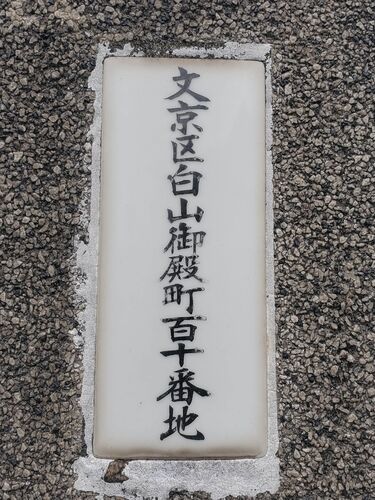 文京区白山御殿町百十番地